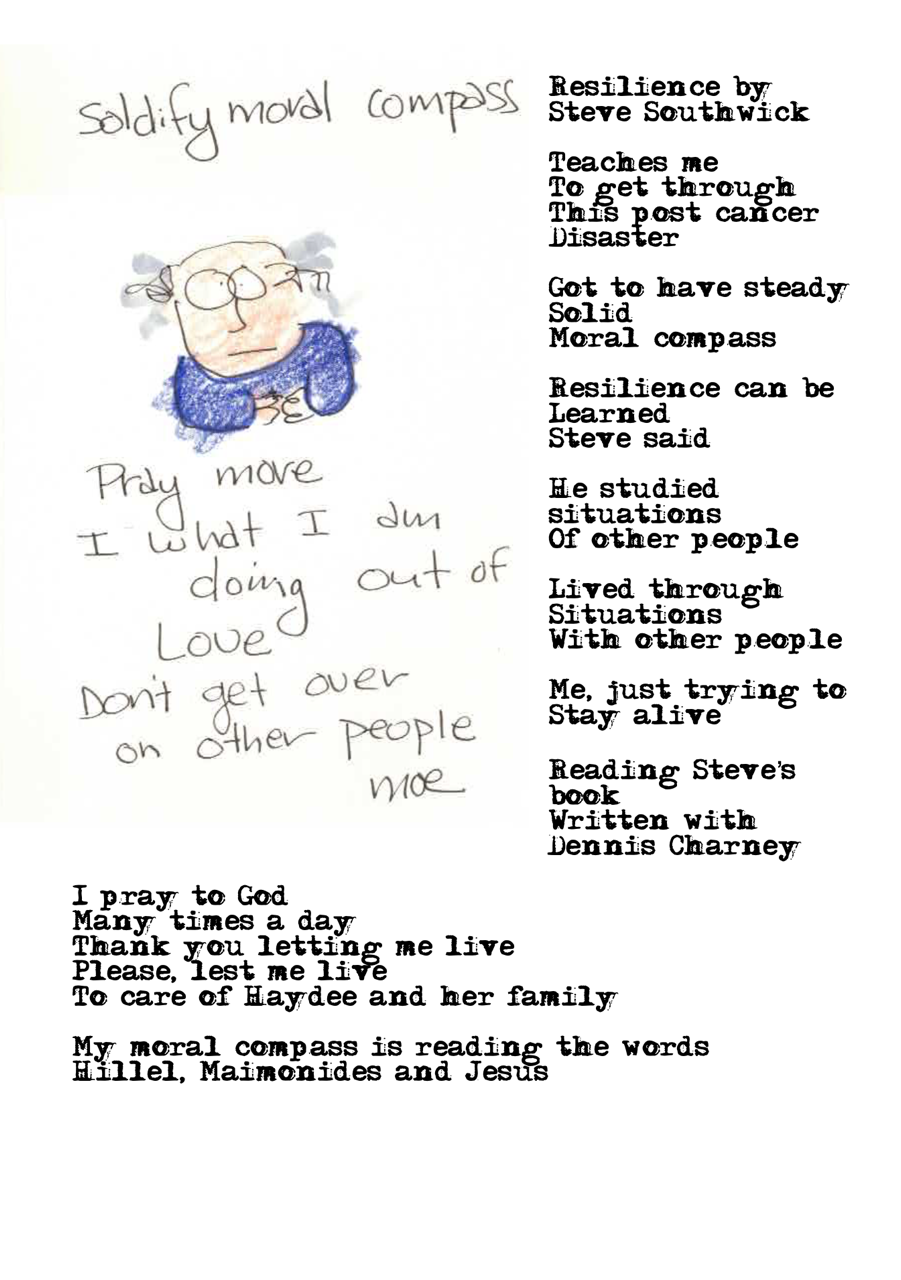 Soldify moral compass
Pray more
I what I am
doing out of
Love
Don't get over
on other people
moe
Resilience by
Steve Southwick
Teaches me
To get through
This post cancer
Disaster
Got to have steady
Solid
Moral compass
Resilience can be
Learned
Steve said
He studied
situations
Of other people
Lived through
Situations
With other people
Me, just trying to
Stay alive
Reading Steve's
book
Written with
Dennis Charney
I pray to God
Many times a day
Thank you letting me live
Please, lest me live
To care of Haydee and her family
My moral compass is reading the words
Hillel, Maimonides and Jesus